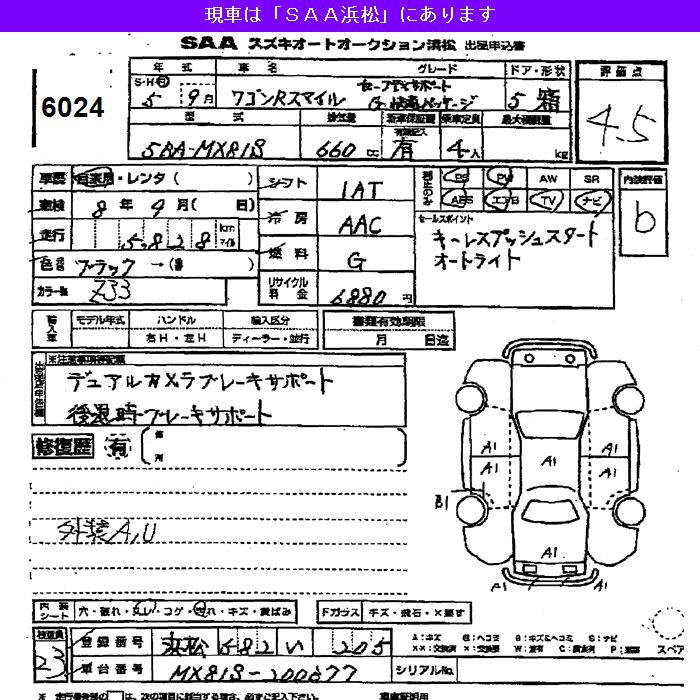 現車は「ＳＡＡ浜松」にあります
SAA スズキオートオークション浜松 出品申込書
6024
年 式 車 名 グレード ドア・形状 評価点
S・H・R
5 9月 ワゴンRスマイル セーフティサポート
G 快適パッケージ 5 箱
4.5
型 式 排気量 新車保証書 乗車定員 最大積載量
有無記入
5BA-MX81S 660cc 有 4人 kg
車歴 自家用・レンタ( )
車検 8 年 9 月( 日)
走行 5828 km マイル
色 ブラック →( )
カラー№ Z33
シフト 1AT
冷房 AAC
燃料 G
リサイクル料金 6880円
PS PW AW SR
ABS エアB TV ナビ
内装評価
b
セールスポイント
キーレスプッシュスタート
オートライト
輸入車 モデル年式 ハンドル 輸入区分 書類有効期限
右H・左H ディーラー・並行 月 日迄
※注意事項等記載
デュアルカメラブレーキサポート
後退時ブレーキサポート
修復歴 有
外装A,U
A1 A1
A1
A1 A1
B1 A1
A1
A1
内装シート 穴・破れ・スレ・コゲ・汚れ・キズ・黄ばみ
Fガラス キズ・飛石・×要す
検査員 23
登録番号 浜松 582 い 205
車台番号 MX81S-200677
シリアルNo.
A：キズ
スペア